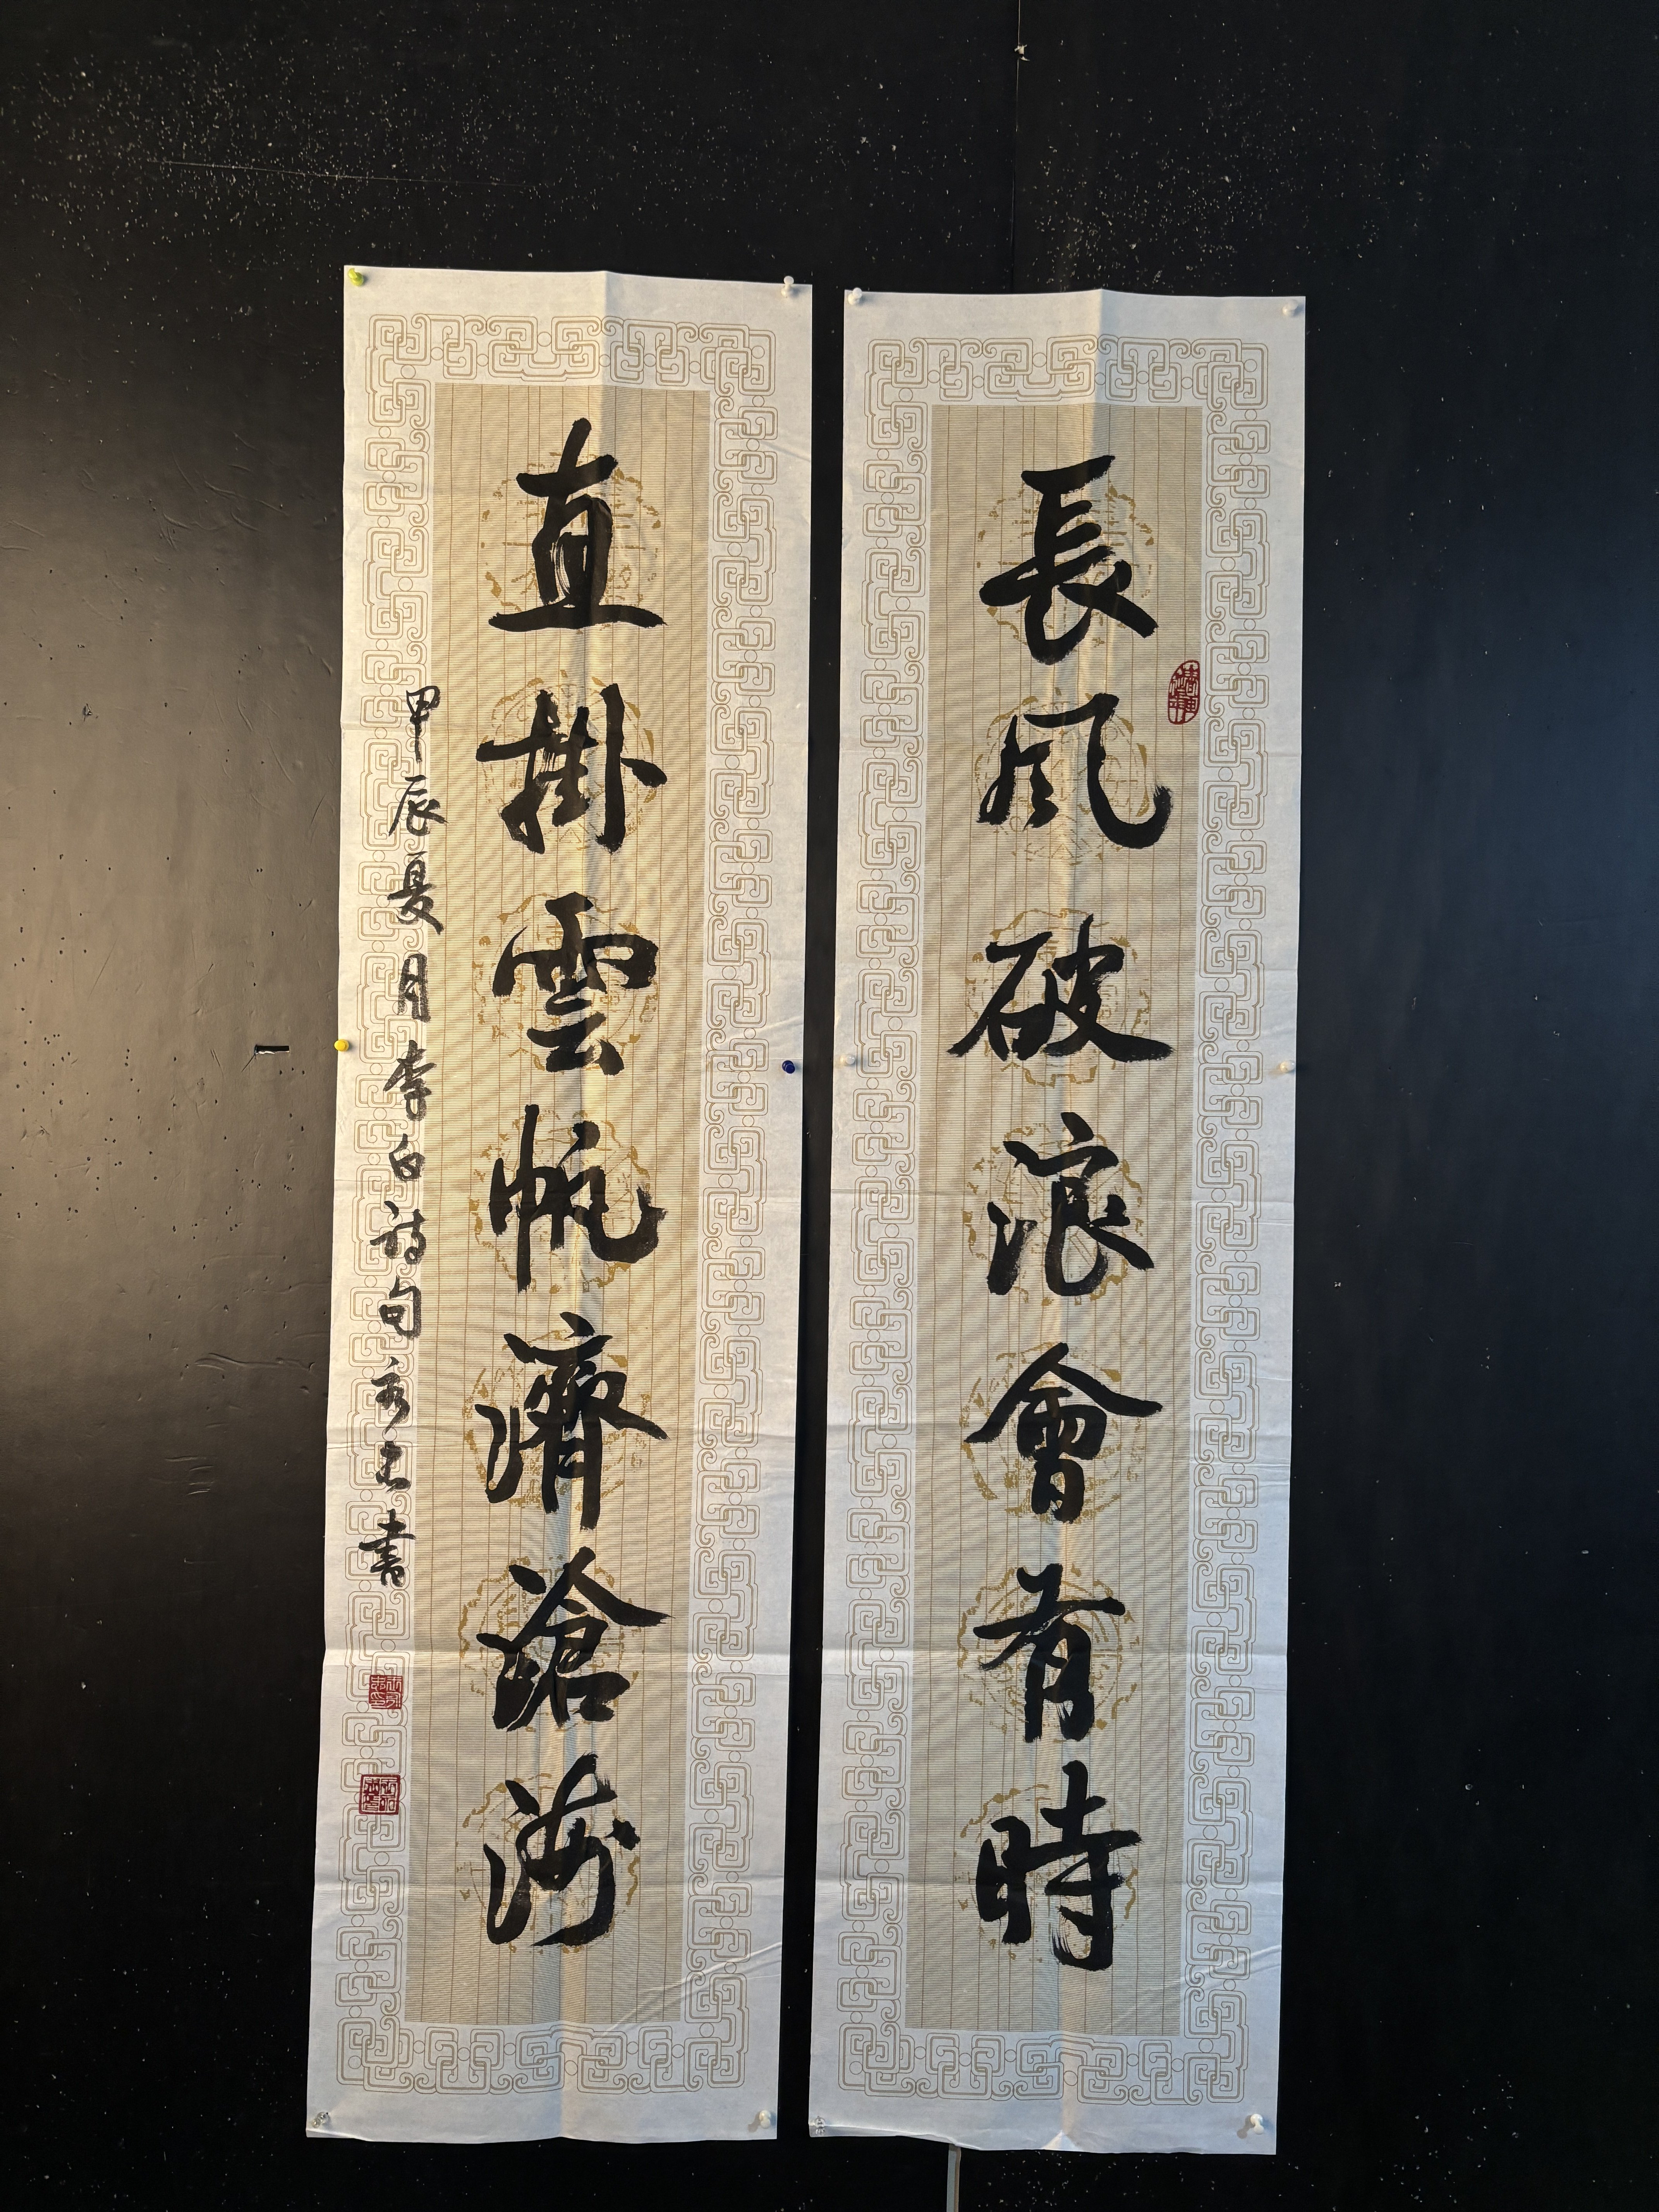 長風破浪會有時
直掛雲帆濟滄海
甲辰夏月李白詩句
書